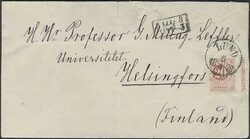 H. Hr Professor G. Mittag-Leffler
Universitetet
Helsingfors
(Finland)
LUND
20